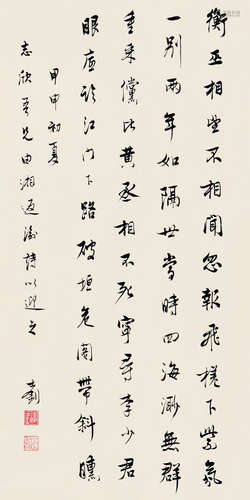 衡巫相望不相聞忽報飛樓下紫氛
一別兩年如隔世當時四海漸無群
重來儻比黃丞相不死寧尋李少君
眼底於江門下路破垣危閣帶斜曛
甲申初夏
志欣吾兄由湘返渝詩以迎之